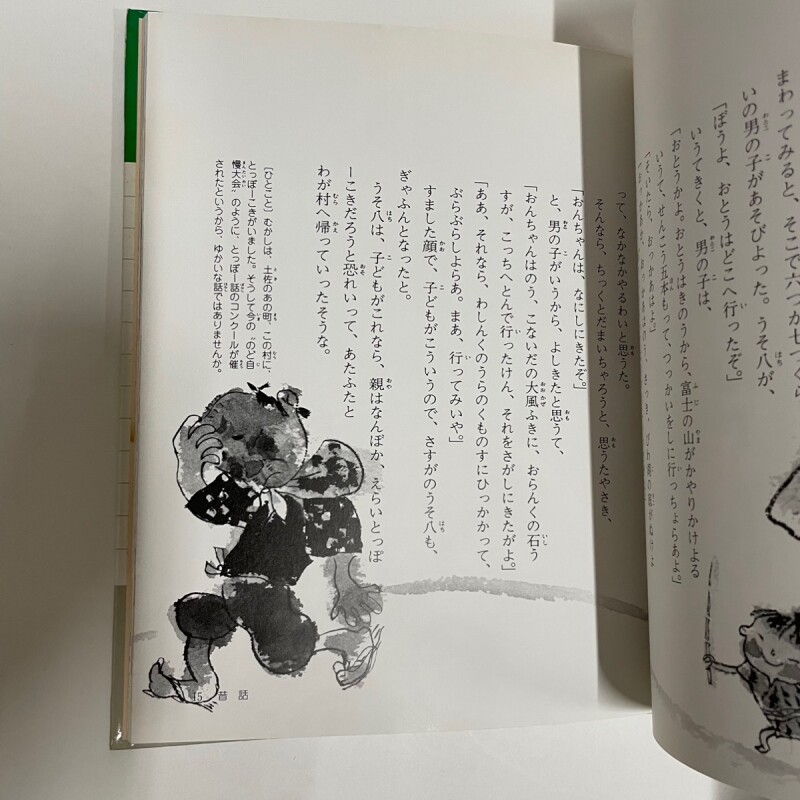 まわってみると、そこで六つか七つくら
いの男の子があそびよった。うそ八が、
「ぼうよ、おとうはどこへ行ったぞ。」
いうてきくと、男の子は、
「おとうかよ。おとうはきのうから、富士の山がかやりかけよる
いうて、せんこう五本もって、つっかいをしに行っちょらあよ。」
「そいたら、おっかあはよ。」
って、なかなかやるわいと思うた。
そんなら、ちっくとだまいちゃろうと、思うたやさき、
「おんちゃんは、なにしにきたぞ。」
と、男の子がいうから、よしきたと思うて、
「おんちゃんはのう、こないだの大風ふきに、おらんくの石う
すが、こっちへとんで行ったけん、それをさがしにきたがよ。」
「ああ、それなら、わしんくのうらのくものすにひっかかって、
ぶらぶらしよらあ。まあ、行ってみいや。」
すました顔で、子どもがこういうので、さすがのうそ八も、
ぎゃふんとなったと。
うそ八は、子どもがこれなら、親はなんぼか、えらいとっぽ
ーこきだろうと恐れいって、あたふたと
わが村へ帰っていったそうな。
〔ひとこと〕むかしは、土佐のあの町、この村に、
とっぽーこきがいました。そうして今の〝のど自
慢大会〟のように、とっぽー話のコンクールが催
されたというから、ゆかいな話ではありませんか。
15 昔話